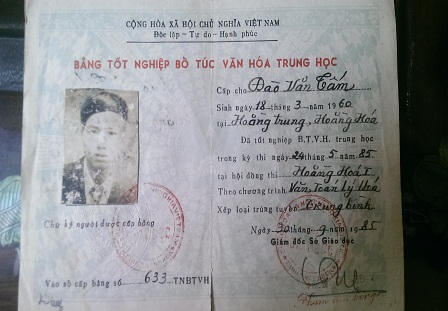 CỘNG HÒA XÃ HỘI CHỦ NGHĨA VIỆT NAM
Độc lập - Tự do - Hạnh phúc
BẰNG TỐT NGHIỆP BỔ TÚC VĂN HÓA TRUNG HỌC
Cấp cho Đào Văn Tấm
Sinh ngày 18 tháng 3 năm 1960
tại Hoằng trung, Hoằng Hoá
Đã tốt nghiệp B.T.V.H. trung học
trong kỳ thi ngày 24 tháng 5 năm 85
tại hội đồng thi Hoằng Hoá I
Theo chương trình Văn Toán Lý Hoá
Xếp loại trúng tuyển Trung bình
Ngày 30 tháng 9 năm 1985
Giám đốc Sở Giáo dục
Chữ ký người được cấp bằng
Vào sổ cấp bằng số 633 TNBTVH